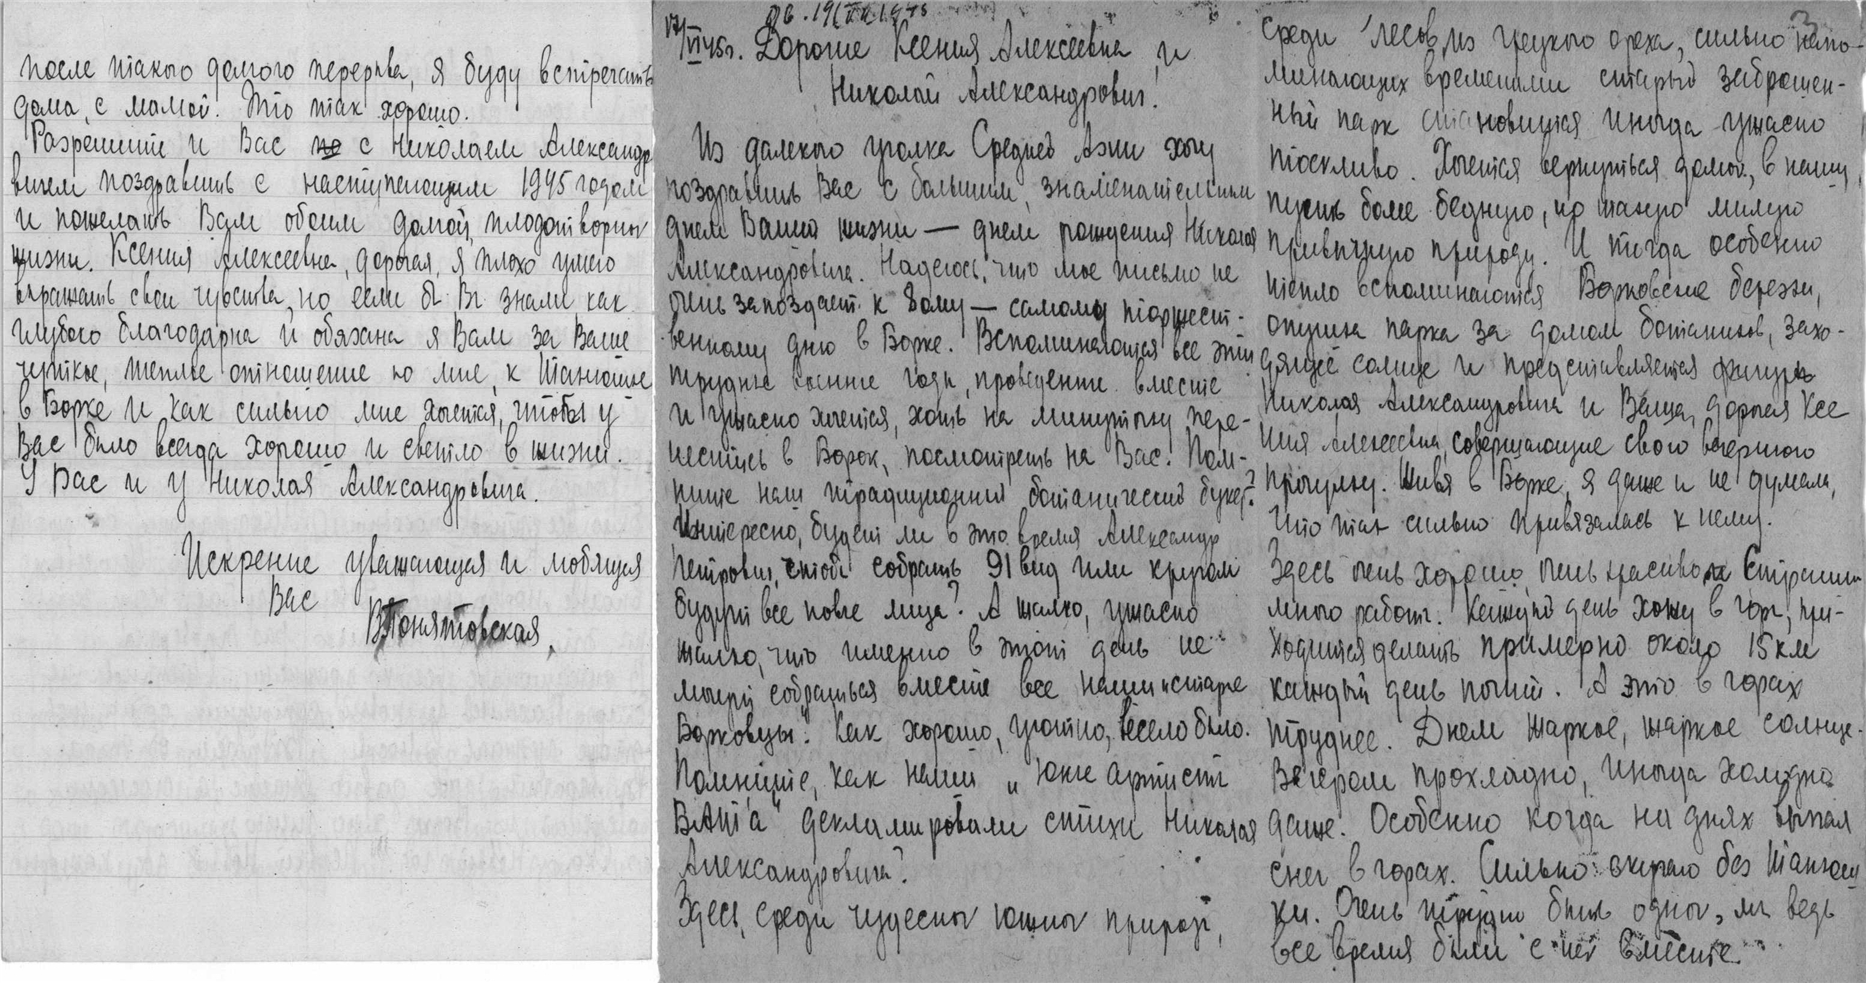 после такого долгого перерыва, я буду встречать
дома, с мамой. Это так хорошо.
Разрешите и Вас с Николаем Александро
вичем поздравить с наступающим 1945 годом
и пожелать Вам обоим долгой, плодотворной
жизни. Ксения Алексеевна, дорогая, я плохо умею
выражать свои чувства, но если бы Вы знали как
глубоко благодарна и обязана я Вам за Ваше
чуткое, теплое отношение ко мне, к Танюшке
в Борке и как сильно мне хочется, чтобы у
Вас было всегда хорошо и светло в жизни.
У Вас и у Николая Александровича.
Искренне уважающая и любящая
Вас
В Понятовская
17/VI 45г. Дорогие Ксения Алексеевна и
Николай Александрович!
Из далекого уголка Средней Азии хочу
поздравить Вас с большим, знаменательным
днем Вашей жизни — днем рождения Николая
Александровича. Надеюсь, что мое письмо не
очень запоздает к 1ому — самому торжест-
венному дню в Борке. Вспоминаются все эти
трудные военные годы, проведенные вместе
и ужасно хочется, хоть на минуточку пере-
нестись в Борок, посмотреть на Вас. Пом-
ните наш традиционный ботанический букет?
Интересно, будет ли в это время Александр
Петрович, чтобы собрать 91 вид или кругом
будут все новые лица? А жалко, ужасно
жалко, что именно в этот день не
могут собраться вместе все наши "старые
Борковцы". Как хорошо, уютно, весело было.
Помните, как наши „юные артисты
ВАНТа" декламировали стихи Николая
Александровича?
Здесь, среди чудесной южной природы,
3
среди лесов из грецкого ореха, сильно напо-
минающих временами старый заброшен-
ный парк становится иногда ужасно
тоскливо. Хочется вернуться домой, в нашу,
пусть более бедную, но такую милую
привычную природу. И тогда особенно
тепло вспоминаются Борковские березы,
опушка парка за домом ботаников, захо-
дящее солнце и представляется фигуры
Николая Александровича и Ваша, дорогая Ксе
ния Алексеевна, совершающие свою вечернюю
прогулку. Живя в Борке, я даже и не думала,
что так сильно привязалась к нему.
Здесь очень хорошо, очень красиво и страшно
много работы. Каждый день хожу в горы, при-
ходится делать примерно около 15 км
каждый день почти. А это в горах
труднее. Днем жаркое, жаркое солнце.
Вечером прохладно, иногда холодно
даже. Особенно когда на днях выпал
снег в горах. Сильно скучаю без Танюш
ки. Очень трудно быть одной, мы ведь
все время были с ней вместе.